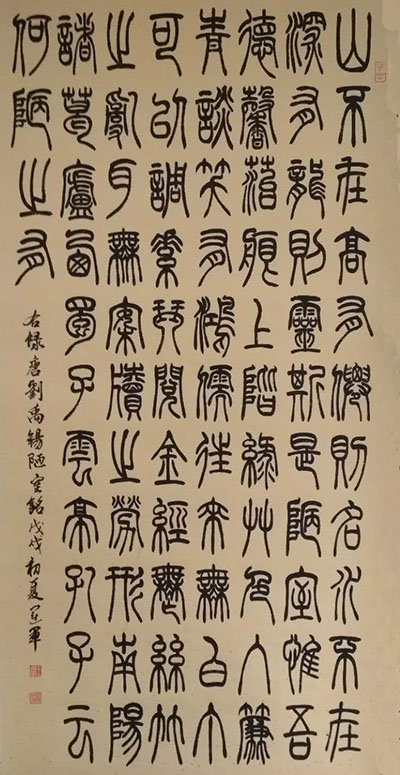 山不在高有僊則名水不在
深有龍則靈斯是陋室惟吾
德馨苔痕上階綠艸色入簾
青談笑有鴻儒往來無白丁
可以調素琴閱金經無絲竹
之亂耳無案牘之勞形南陽
諸葛廬西蜀子雲亭孔子云
何陋之有
右錄唐劉禹錫陋室銘戊戌初夏